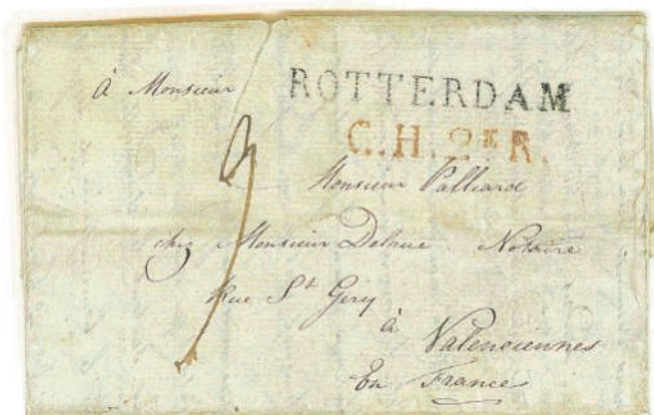 à Monsieur
ROTTERDAM
C.H. 2E R.
Monsieur Palliard
chez Monsieur Delrue. Notaire
Rue St Gery
à Valenciennes
En France